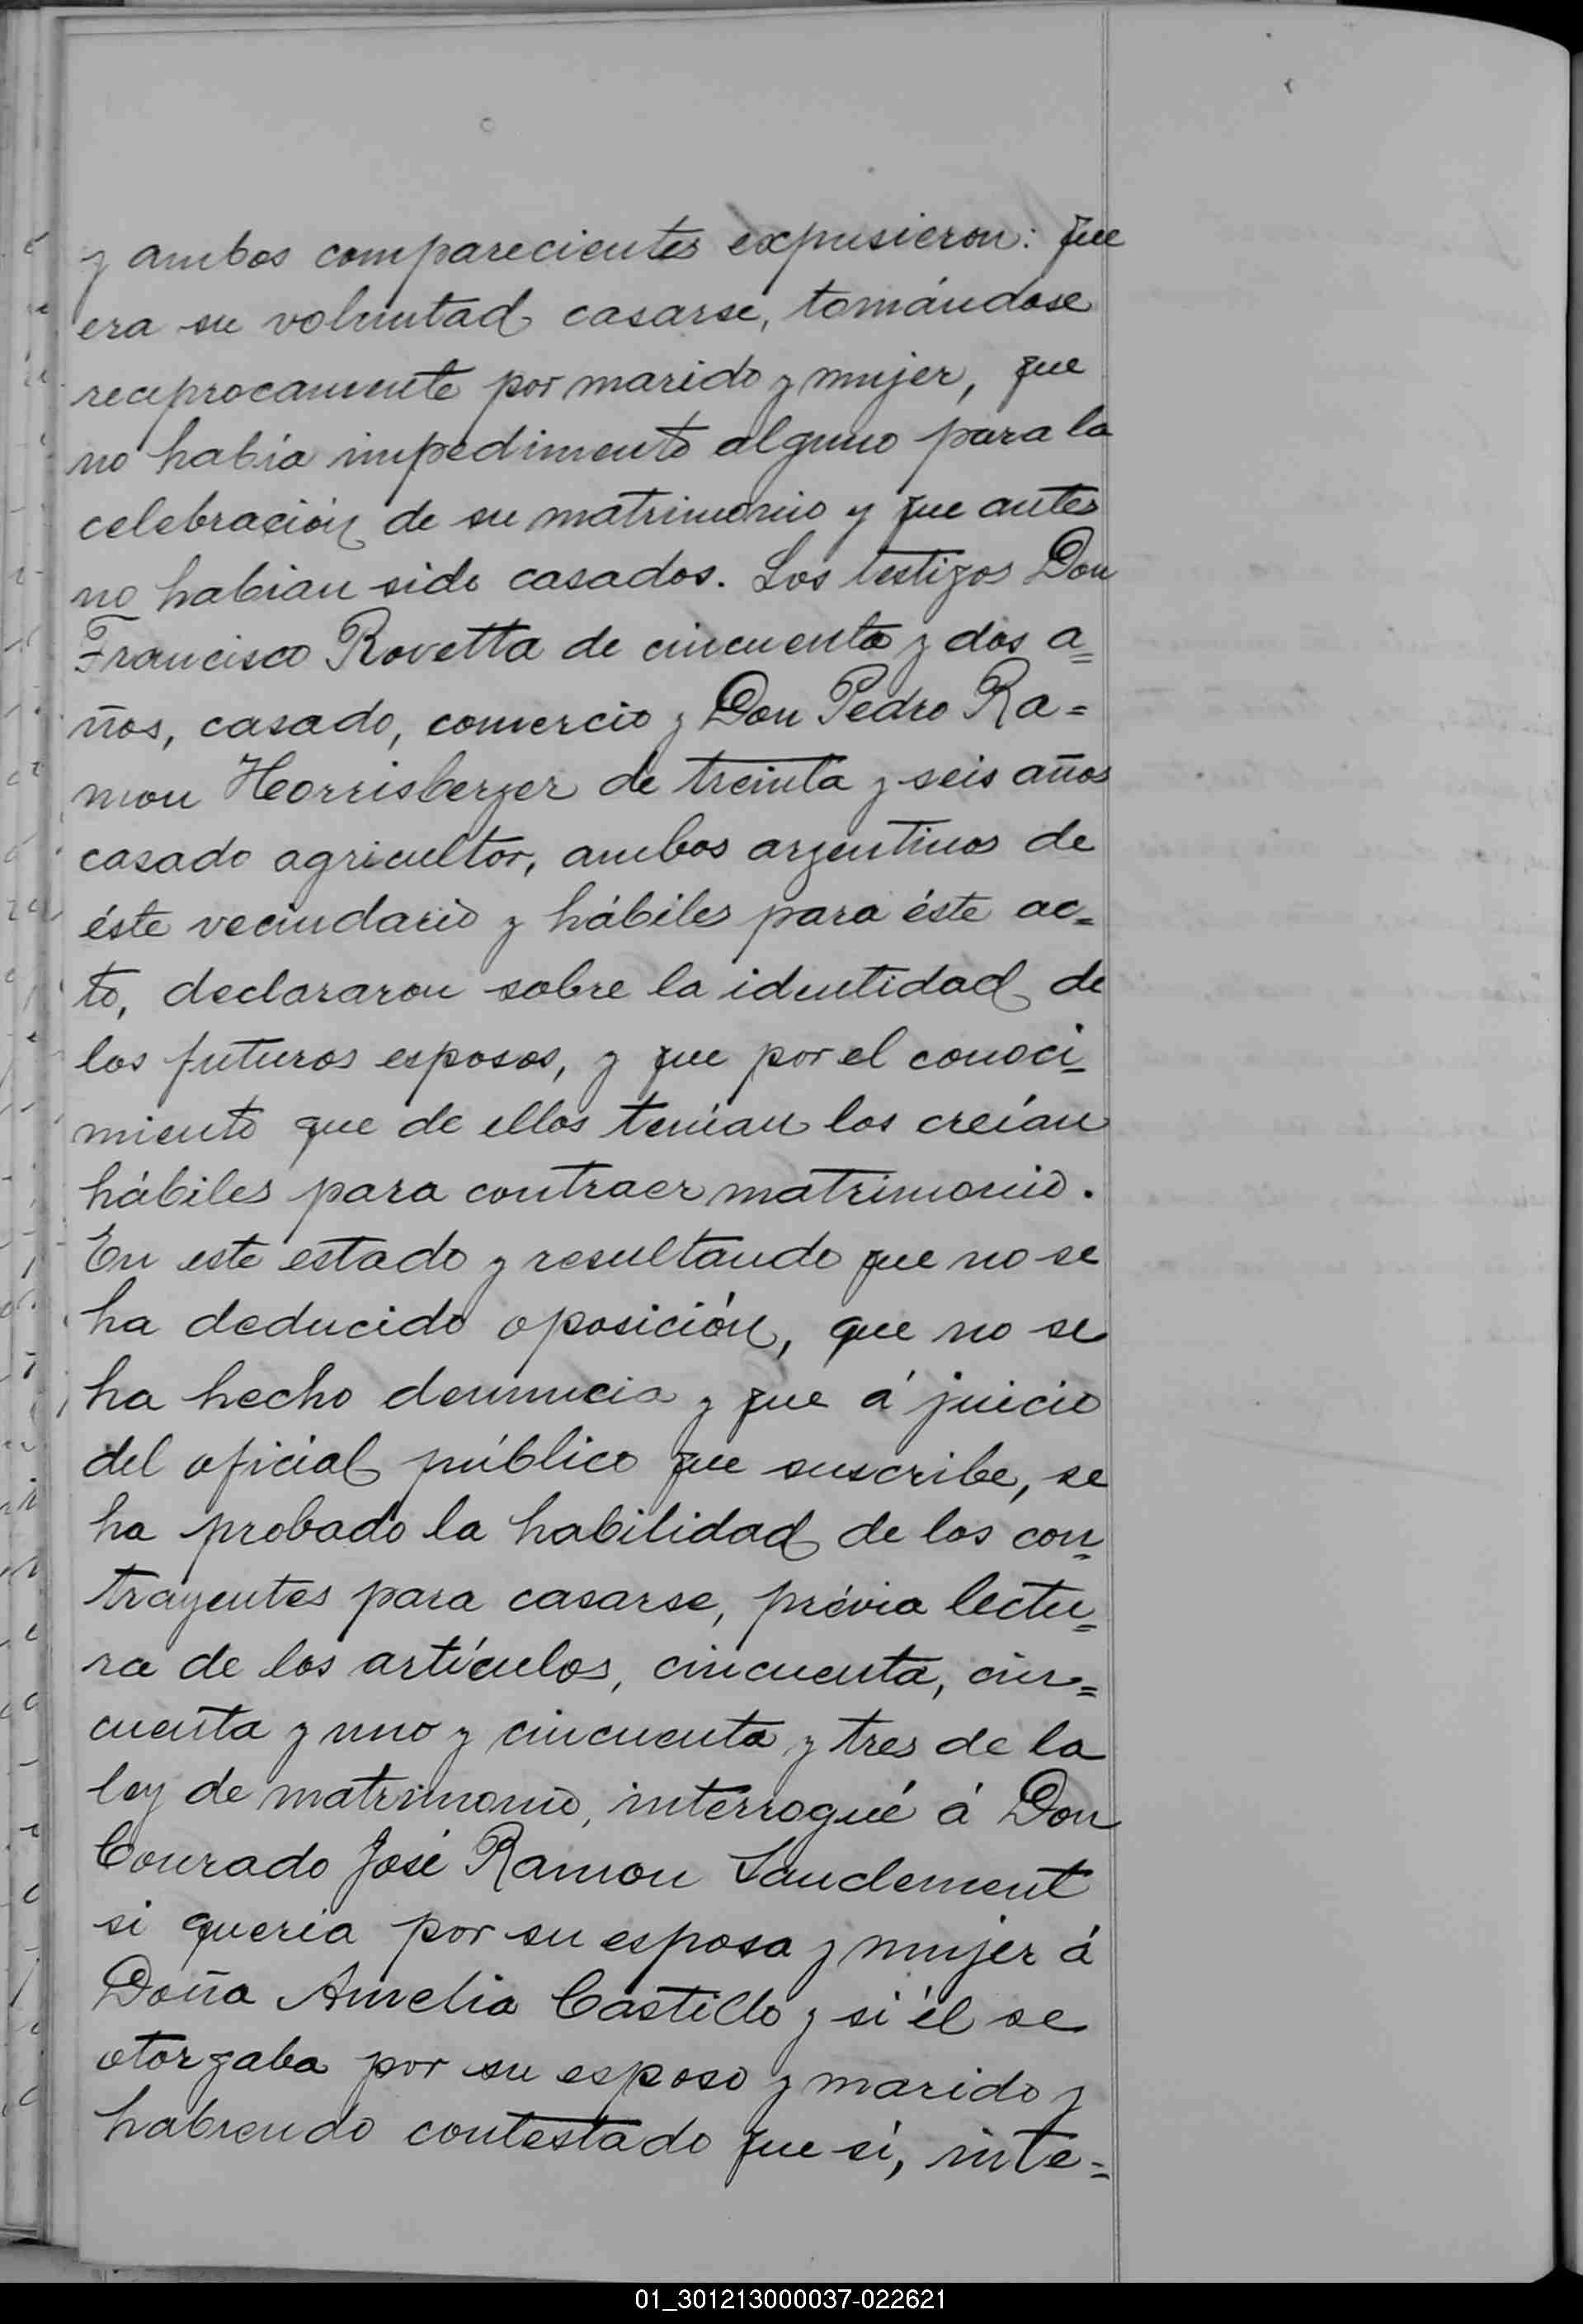 y ambos comparecientes expusieron: que
era su voluntad casarse, tomándose
reciprocamente por marido y mujer, que
no había impedimento alguno para la
celebración de su matrimonio y que antes
no habian sido casados. Los testigos Don
Francisco Rovetta de cincuenta y dos a=
ños, casado, comercio y Don Pedro Ra=
mon Horrisberger de treinta y seis años
casado agricultor, ambos argentinos de
éste vecindario y hábiles para éste ac=
to, declararon sobre la identidad de
los futuros esposos, y que por el conoci=
miento que de ellos tenían los creían
hábiles para contraer matrimonio.
En este estado y resultando que no se
ha deducido oposición, que no se
ha hecho denuncia y que á juicio
del oficial público que suscribe, se
ha probado la habilidad de los con=
trayentes para casarse, prévia lectu=
ra de los artículos, cincuenta, cin=
cuenta y uno y cincuenta y tres de la
ley de matrimonio, interrogué á Don
Conrado José Ramon Sanclement
si queria por su esposa y mujer á
Doña Amelia Castillo y si él se
otorgaba por su esposo y marido y
habiendo contestado que si, inte=
01_301213000037-022621